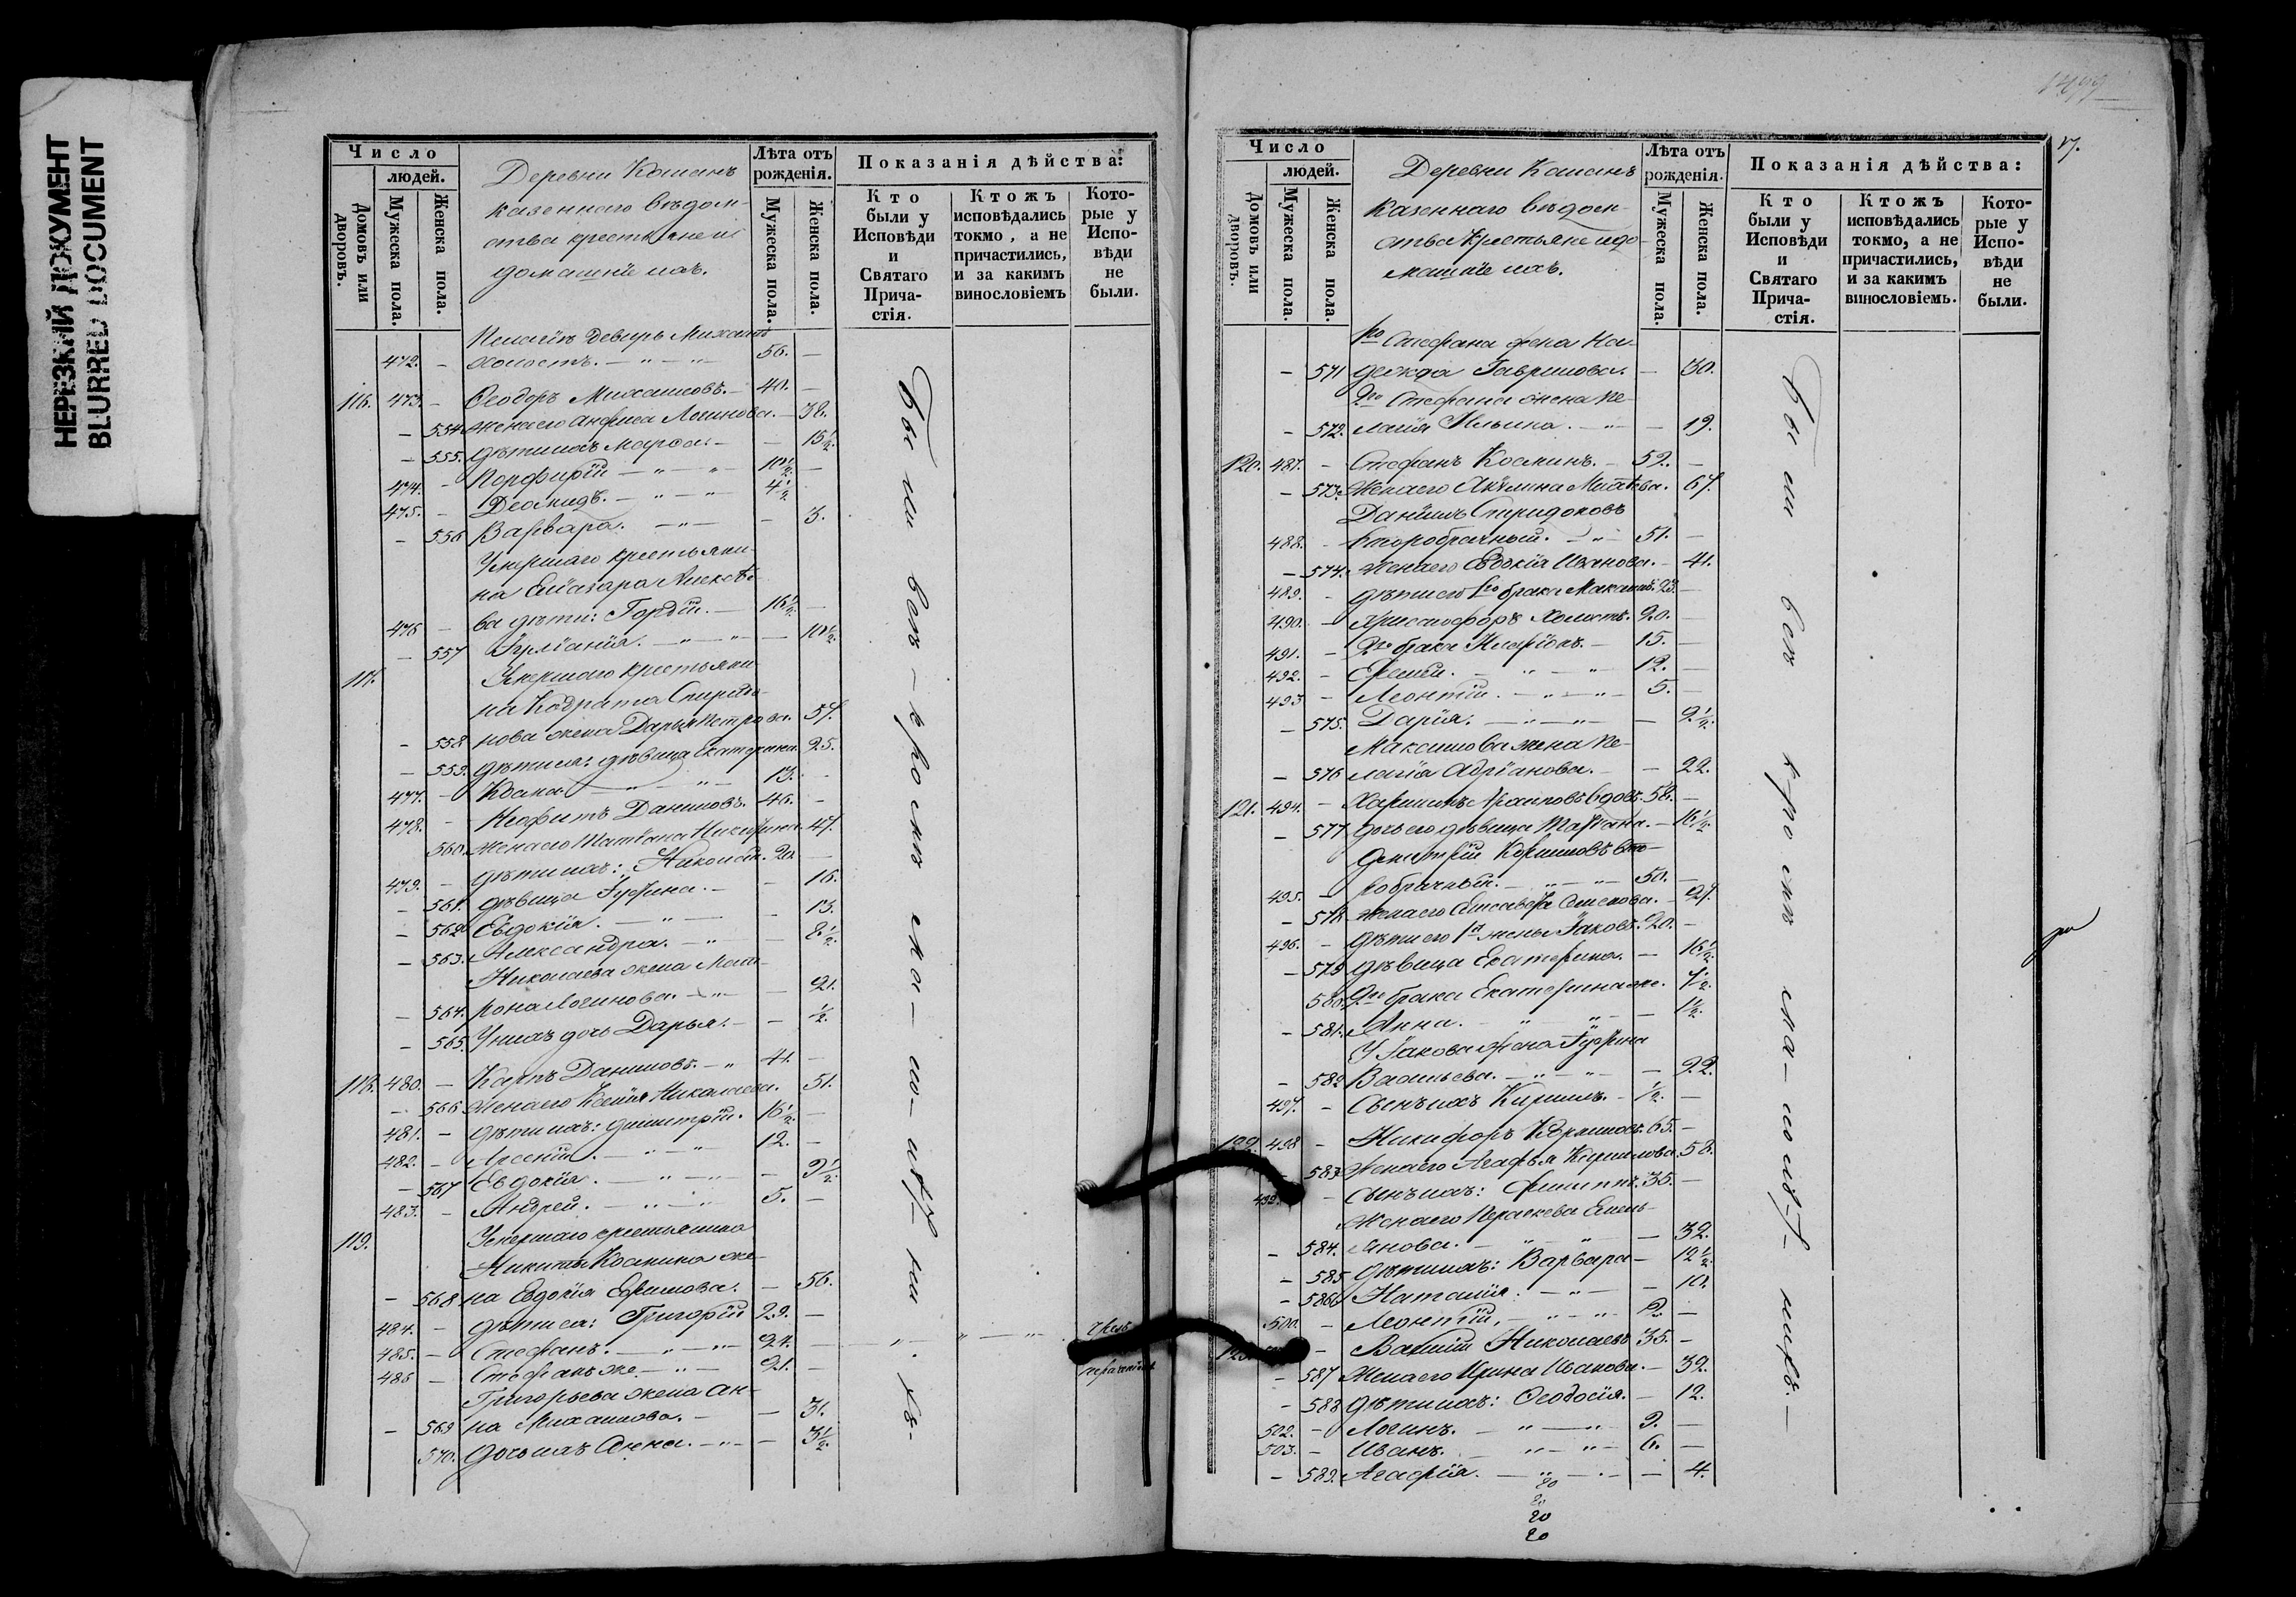 НЕРЕЗКИЙ ДОКУМЕНТ
BLURRED DOCUMENT
Число
людей.
Домовъ или дворовъ.
Мужеска пола.
Женска пола.
Деревни Кашанъ
казеннаго ведом-
ства крестьяне и
домашніе ихъ.
Лѣта отъ рожденія.
Мужеска пола.
Женска пола.
Показанія дѣйства:
Кто были у Исповѣди и Святаго Причастія.
Ктожъ исповѣдались токмо, а не причастились, и за какимъ винословіемъ
Которые у Исповѣди не были.
деверь
472. - холостъ. - " - " 56. -
116. 473. - Ѳеодоръ Михаиловъ. - 40. -
- 554 жена его Анфиса Логинова. - 38.
- 555. дѣти ихъ: Марѳа. - - 15½
474. - Порфирій - " - " 10½. -
475. - - " - " 4½
- 556 Варвара. - " - - 3.
Умершаго крестьяни-
на Еліазара Алексѣе-
476 - ва дѣти: Гордій. - 16½. -
- 557 Іуліанія. - " - " - 10½
117. Умершаго крестьяни-
на Кодрата Спиридо-
- 558 нова жена Дарья Петрова. 57.
- 559. дѣти ея: дѣвица Екатерина. 25.
477. - - " - 13. -
478. - Неофитъ Даниловъ. 46. -
560. жена его Татіана Никифорова. 47.
479. - дѣти ихъ: Николай. 20. -
- 561. дѣвица Іуфина. - - 16.
- 562 Евдокія. - " - - 13.
- 563. Александра. - " - 8½
Николаева жена Мат-
- 564. рона Логинова. - " - 21.
- 565. У нихъ дочь Дарья. - - ½.
118. 480. - Карпъ Даниловъ. - " 41. -
- 566 жена его Ксенія Николаева. 51.
481. - дѣти ихъ: Димитрій. 16½. -
482. - Арсеній. - " - " 12. -
- 567 Евдокія. - " - " - 9½
483. - Андрей. - " - " 5. -
119. Умершаго крестьянина
Никиты Космина же-
- 568 на Евдокія Ефимова. - 56.
484. - дѣти ея: Григорій 29. -
485. - Стефанъ. - " - " 24. -
486 - Стефанъ же. - " - 21. -
Григорьева жена Ан-
- 569 на Михаилова. - - 31.
570. дочь ихъ Анна. - " - - 3½.
Были всѣ кромѣ
17.
Число
людей.
Домовъ или дворовъ.
Мужеска пола.
Женска пола.
Деревни Кашанъ
казеннаго ведом-
ства крестьяне и до-
машніе ихъ.
Лѣта отъ рожденія.
Мужеска пола.
Женска пола.
Показанія дѣйства:
Кто были у Исповѣди и Святаго Причастія.
Ктожъ исповѣдались токмо, а не причастились, и за какимъ винословіемъ.
Которые у Исповѣди не были.
1го Стефана жена На-
- 571 дежда Гаврилова. - 30.
2го Стефана жена Пе-
- 572. лагія Ильина. - " - 19.
120. 487. - Стефанъ Косминъ. - 59. -
- 573. жена его Акилина Матѳѣева. 67.
Даніилъ Спиридоновъ
488. - второбрачный. - " - 51. -
- 574. жена его Евдокія Иванова. - 41.
489. - дѣти его 1го брака Максимъ. 23. -
490. - Христофоръ холостъ. 20. -
491. - 2го брака Иларіонъ. - 15. -
492. - - " - " 12. -
493 - Леонтій. - " - " - 5. -
- 575. Дарія. - " - " - 9½.
Максимова жена Пе-
- 576 лагія Адріанова. - - 22.
121. 494. - вдовъ. 58. -
- 577 дочь его дѣвица - 16½.
Димитрій Кириловъ вто-
495. - робрачный. - " - " - 50. -
- 578. жена его Елисавета Семенова. - 27.
496. - дѣти его 1й жены Іаковъ. 20. -
- 579 дѣвица Екатерина. - 16½.
580. 2го брака Екатерина же. 7½.
- 581. Анна. - " - " - 1½.
У Іакова жена Іуфина
- 582 Васильева. - " - " - 22.
497. - Сынъ ихъ Кирилъ. - ½. -
122. 498 - Никифоръ 65. -
- 583 жена его Агафья Кирилова. 58.
499. - Сынъ ихъ: Филиппъ. 35. -
жена его Параскева Емель-
- 584. янова. - " - " - 32.
- 585 дѣти ихъ: Варвара - 12½.
- 586 Наталія. - " - - 10.
500. - Леонтій. - " - " 2. -
123. - Николаевъ 35. -
- 587 жена его Ирина Иванова. - 32.
- 588 дѣти ихъ: Ѳеодосія. - 12.
502. - Логинъ. - " - " - 9. -
503. - Иванъ. - " - " - 6. -
- 589. Агафія. - " - " - 4.
20
20
20
Были всѣ кромѣ